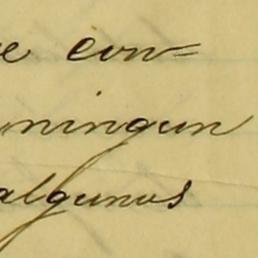 e con=
ningun
algunos